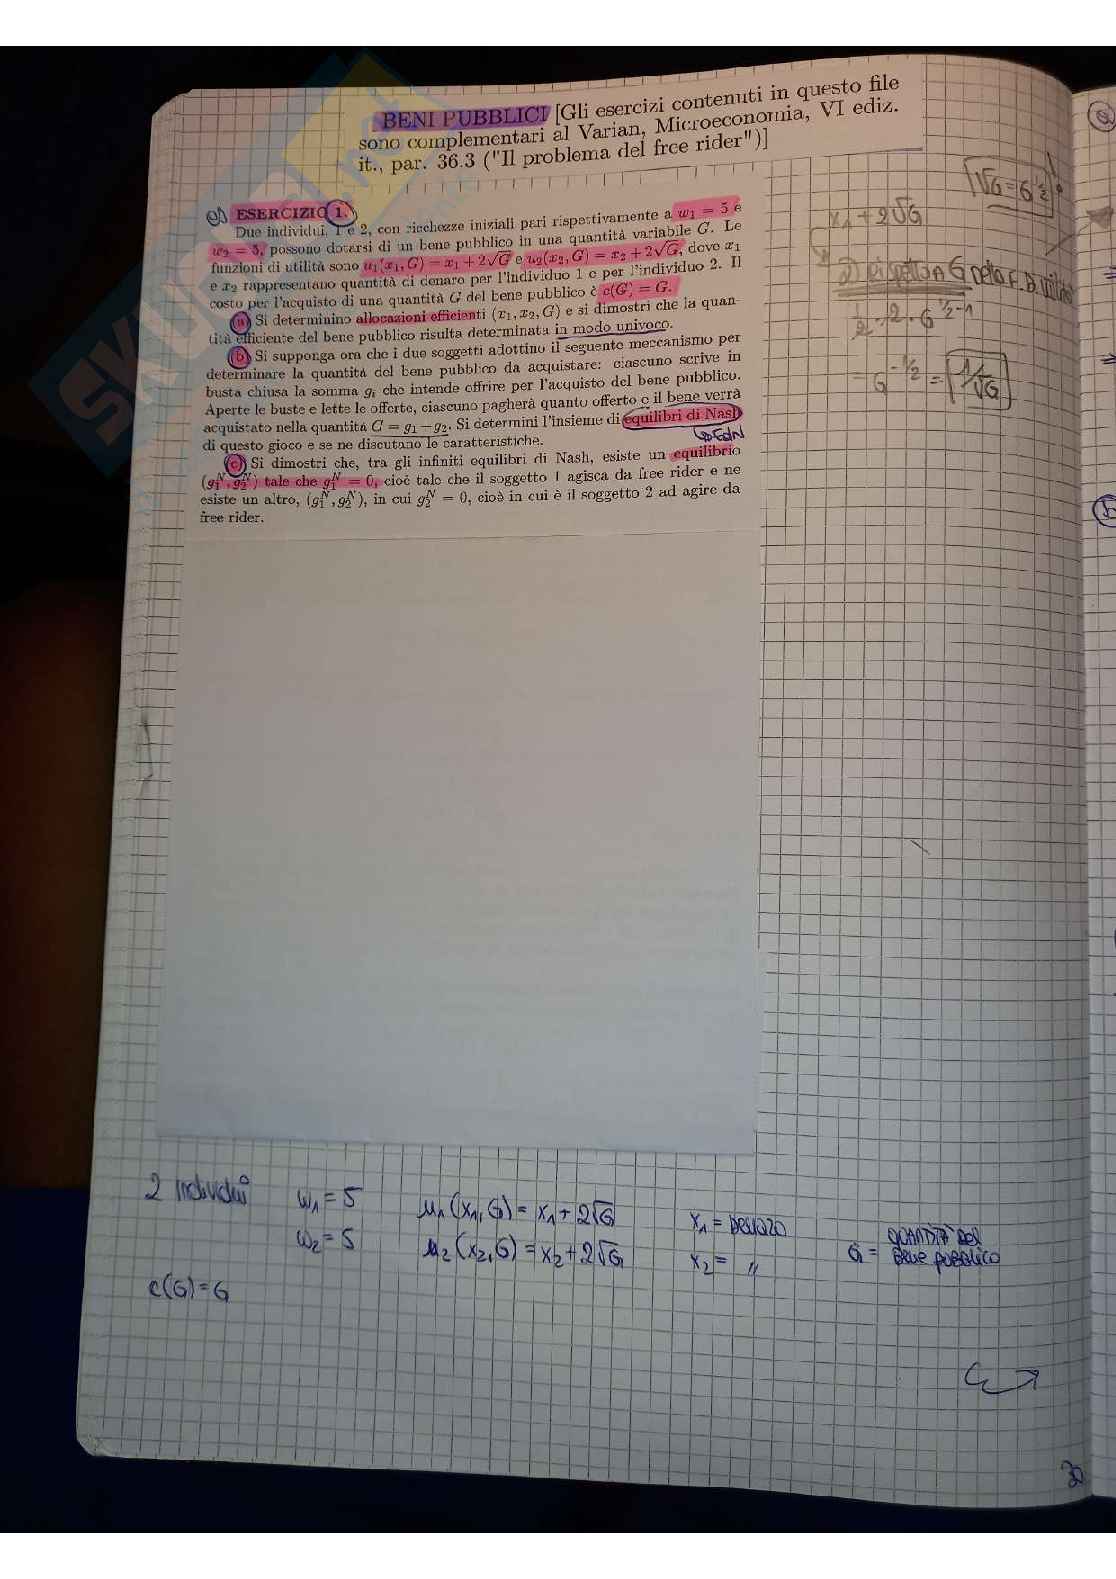 BENI PUBBLICI [Gli esercizi contenuti in questo file
sono complementari al Varian, Microeconomia, VI ediz.
it., par. 36.3 ("Il problema del free rider")]
e) ESERCIZIO 1.
Due individui, 1 e 2, con ricchezze iniziali pari rispettivamente a w₁ = 5 e
w₂ = 5, possono dotarsi di un bene pubblico in una quantità variabile G. Le
funzioni di utilità sono u₁(x₁, G) = x₁ + 2√G e u₂(x₂, G) = x₂ + 2√G, dove x₁
e x₂ rappresentano quantità di denaro per l'individuo 1 e per l'individuo 2. Il
costo per l'acquisto di una quantità G del bene pubblico è c(G) = G.
(a) Si determinino allocazioni efficienti (x₁, x₂, G) e si dimostri che la quan-
tità efficiente del bene pubblico risulta determinata in modo univoco.
(b) Si supponga ora che i due soggetti adottino il seguente meccanismo per
determinare la quantità del bene pubblico da acquistare: ciascuno scrive in
busta chiusa la somma gᵢ che intende offrire per l'acquisto del bene pubblico.
Aperte le buste e lette le offerte, ciascuno pagherà quanto offerto e il bene verrà
acquistato nella quantità G = g₁ + g₂. Si determini l'insieme di equilibri di Nash
EdN
di questo gioco e se ne discutano le caratteristiche.
(c) Si dimostri che, tra gli infiniti equilibri di Nash, esiste un equilibrio
(g₁ᴺ, g₂ᴺ) tale che g₁ᴺ = 0, cioè tale che il soggetto 1 agisca da free rider e ne
esiste un altro, (g₁ᴺ, g₂ᴺ), in cui g₂ᴺ = 0, cioè in cui è il soggetto 2 ad agire da
free rider.
√G = G^½
x₁ + 2√G
rispetto a G nella f. di utilità
½ · 2 · G^½⁻¹
= G^-½ = 1/√G
2 individui
w₁ = 5
w₂ = 5
u₁(x₁, G) = x₁ + 2√G
u₂(x₂, G) = x₂ + 2√G
x₁ = denaro
x₂ = "
G = quantità del
bene pubblico
c(G) = G